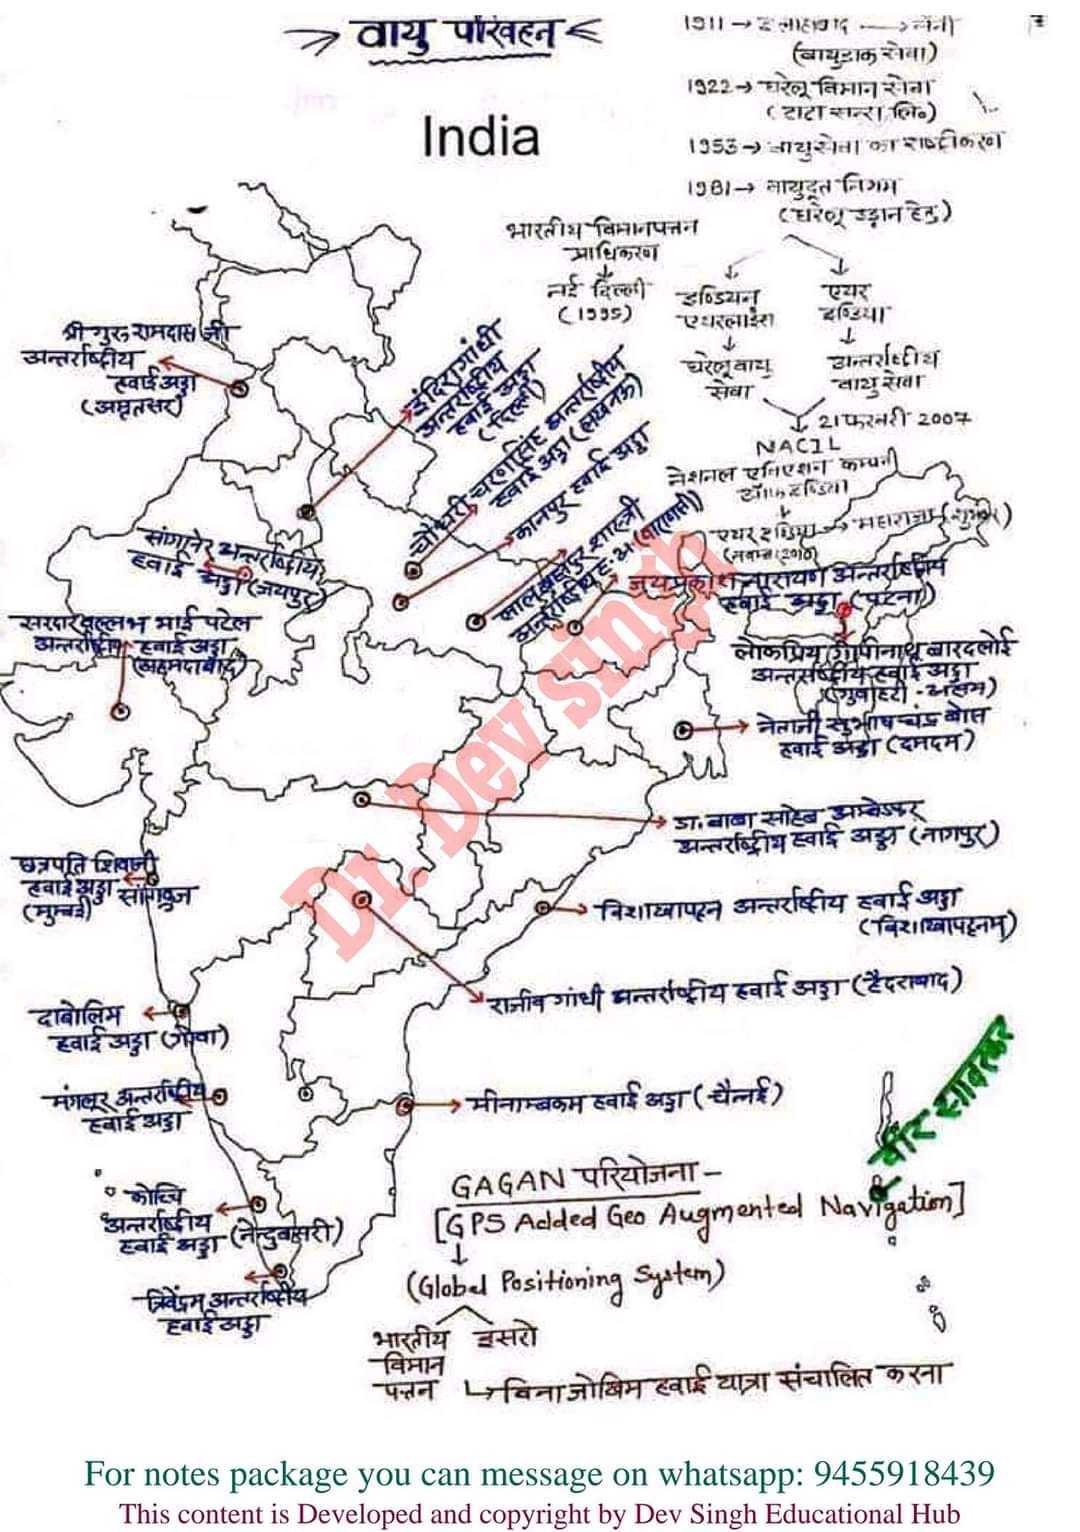 वायु परिवहन
India
1911 → इलाहाबाद → नैनी
(वायुडाक सेवा)
1922 → घरेलू विमान सेवा
(टाटा सन्स लि०)
1953 → वायुसेवा का राष्ट्रीकरण
1981 → वायुदूत निगम
(घरेलू उड़ान हेतु)
भारतीय विमानपत्तन
प्राधिकरण
नई दिल्ली
(1995)
इण्डियन
एयरलाइंस
घरेलू वायु
सेवा
एयर
इण्डिया
अन्तर्राष्ट्रीय
वायु सेवा
21 फरवरी 2007
NACIL
नेशनल एविएशन कम्पनी
ऑफ इण्डिया
एयर इण्डिया → महाराजा
श्री गुरु रामदास जी
अन्तर्राष्ट्रीय
हवाई अड्डा
(अमृतसर)
इंदिरा गांधी
अन्तर्राष्ट्रीय
हवाई अड्डा
(दिल्ली)
चौधरी चरण सिंह अन्तर्राष्ट्रीय
हवाई अड्डा (लखनऊ)
कानपुर हवाई अड्डा
लाल बहादुर शास्त्री
अन्तर्राष्ट्रीय ह. अ (वाराणसी)
जयप्रकाश नारायण अन्तर्राष्ट्रीय
हवाई अड्डा (पटना)
सांगानेर अन्तर्राष्ट्रीय
हवाई अड्डा (जयपुर)
सरदार वल्लभ भाई पटेल
अन्तर्राष्ट्रीय हवाई अड्डा
(अहमदाबाद)
लोकप्रिय गोपीनाथ बारदलोई
अन्तर्राष्ट्रीय हवाई अड्डा
(गुवाहटी - असम)
नेताजी सुभाष चंद्र बोस
हवाई अड्डा (दमदम)
डा. बाबा साहेब अम्बेडकर
अन्तर्राष्ट्रीय हवाई अड्डा (नागपुर)
छत्रपति शिवाजी
हवाई अड्डा सांताक्रुज
(मुम्बई)
विशाखापट्टन अन्तर्राष्ट्रीय हवाई अड्डा
(विशाखापट्टनम्)
राजीव गांधी अन्तर्राष्ट्रीय हवाई अड्डा (हैदराबाद)
दाबोलिम
हवाई अड्डा (गोवा)
मंगलूर अन्तर्राष्ट्रीय
हवाई अड्डा
मीनाम्बकम हवाई अड्डा (चैन्नई)
वीर सावरकर
कोच्चि
अन्तर्राष्ट्रीय
हवाई अड्डा (नेन्दुबासरी)
त्रिवेंद्रम अन्तर्राष्ट्रीय
हवाई अड्डा
GAGAN परियोजना -
[GPS Added Geo Augmented Navigation]
(Global Positioning System)
भारतीय इसरो
विमान
पत्तन
↳ बिना जोखिम हवाई यात्रा संचालित करना
Dr. Dev singh
For notes package you can message on whatsapp: 9455918439
This content is Developed and copyright by Dev Singh Educational Hub